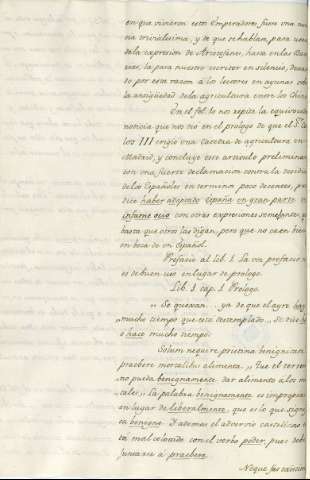 en que vivieron estos Emperadores, fuese una
tra vivissima, y de que se hablan, para usar
de la expresion de Aristofanes, hasta en las Bar
la para nuestro escritor en silencio, dexan
do por esta razon a los lectores en ayunas sobre
la antigüedad de la agricultura entre los Chinos
En el fol. le nos repite la equivocada
noticia que nos dio en el prologo de que el Sr. Car
los III erigio una Catedra de agricultura en
Madrid, y concluye este articulo preliminar
con una fuerte declamacion contra la desidia
de los Españoles en terminos poco decentes, pues
dice haber adoptado España en gran parte un
infame ocio con otras expresiones semejantes, q
basta que otros las digan, pero que no caen bien
en boca de un Español.
Prefacio al lib. 1. La voz prefacio no
es de buen uso en lugar de prologo.
Lib. 1 cap. 1 Prologo.
„ Se quexan ... ya de que el ayre hay
mucho tiempo que está destemplado „ Se dice
hace mucho tiempo.
Solum nequire pristina benignitate
praebere mortalibus alimenta. „ Que el terreno
no pueda benignamente dar alimento a los mor
tales „ La palabra benignamente es impropia
en lugar de liberalmente, que es lo que signifi
ca benigne. Y ademas el adverbio castellano es
tá mal colocado con el verbo poder, pues debe
juntarse a praebere.
Neque fas existim